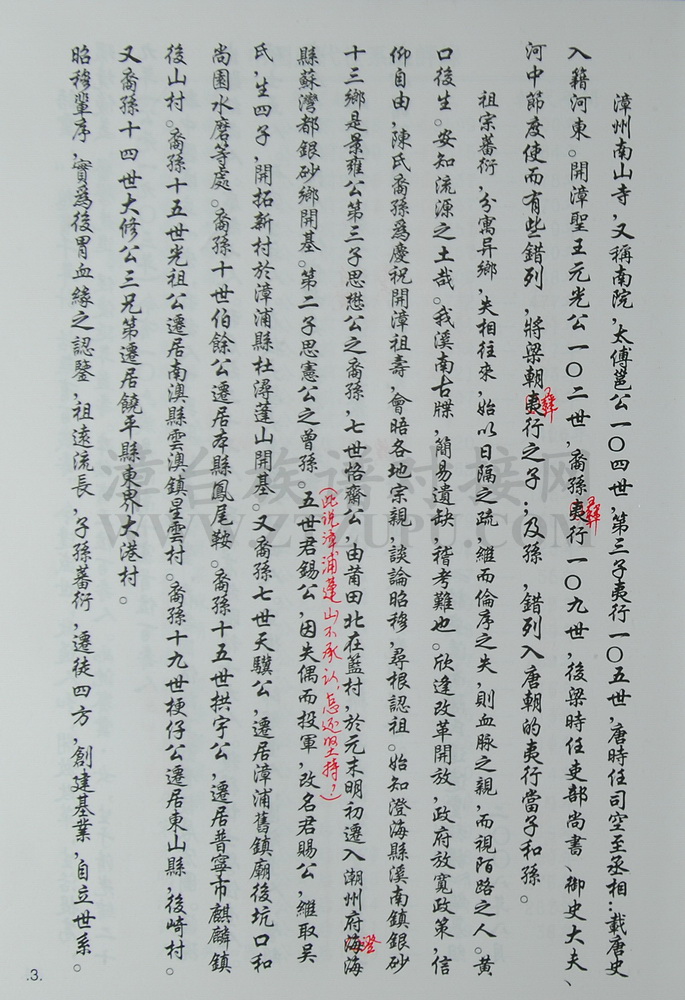 漳州南山寺，又稱南院，太傅邕公一〇四世，第三子夷行一〇五世，唐時任司空至丞相：載唐史
入籍河東。開漳聖王元光公一〇二世，裔孫夷行一〇九世，後梁時任吏部尚書、御史大夫、
彝
河中節度使而有些錯列，將梁朝夷行之子；及孫，錯列入唐朝的夷行當子和孫。
彝
祖宗蕃衍，分寓异鄉，失相往來，始以日隔之疏，繼而倫序之失，則血脉之親，而視陌路之人。黃
口後生。安知流源之土哉。我溪南古牒，簡易遺缺，稽考難也。欣逢改革開放，政府放寬政策，信
仰自由，陳氏裔孫為慶祝開漳祖壽，會晤各地宗親，談論昭穆，尋根認祖。始知澄海縣溪南鎮銀砂
十三鄉是景雍公第三子思懋公之裔孫，七世恪齋公，由莆田北在藍村，於元末明初遷入潮州府海海
澄
縣蘇灣都銀砂鄉開基。第二子思憲公之曾孫。五世君錫公，因失偶而投軍，改名君賜公，繼取吳
（此说漳浦蓬山不承认，怎还坚持？）
氏，生四子，開拓新村於漳浦縣杜潯蓬山開基。又裔孫七世天驥公，遷居漳浦舊鎮廟後坑口和
尚園水磨等處。裔孫十世伯餘公遷居本縣鳳尾鞍。裔孫十五世拱宇公，遷居普寧市麒麟鎮
後山村。裔孫十五世光祖公遷居南澳縣雲澳鎮呈雲村。裔孫十九世梗仔公遷居東山縣，後崎村。
又裔孫十四世大修公三兄第遷居饒平縣東界大港村。
昭穆輩序，實為後胃血緣之認鑒，祖遠流長，子孫蕃衍，遷徒四方，創建基業，自立世系。
.3.
漳台族谱对接网
WWW.ZTZUPU.COM